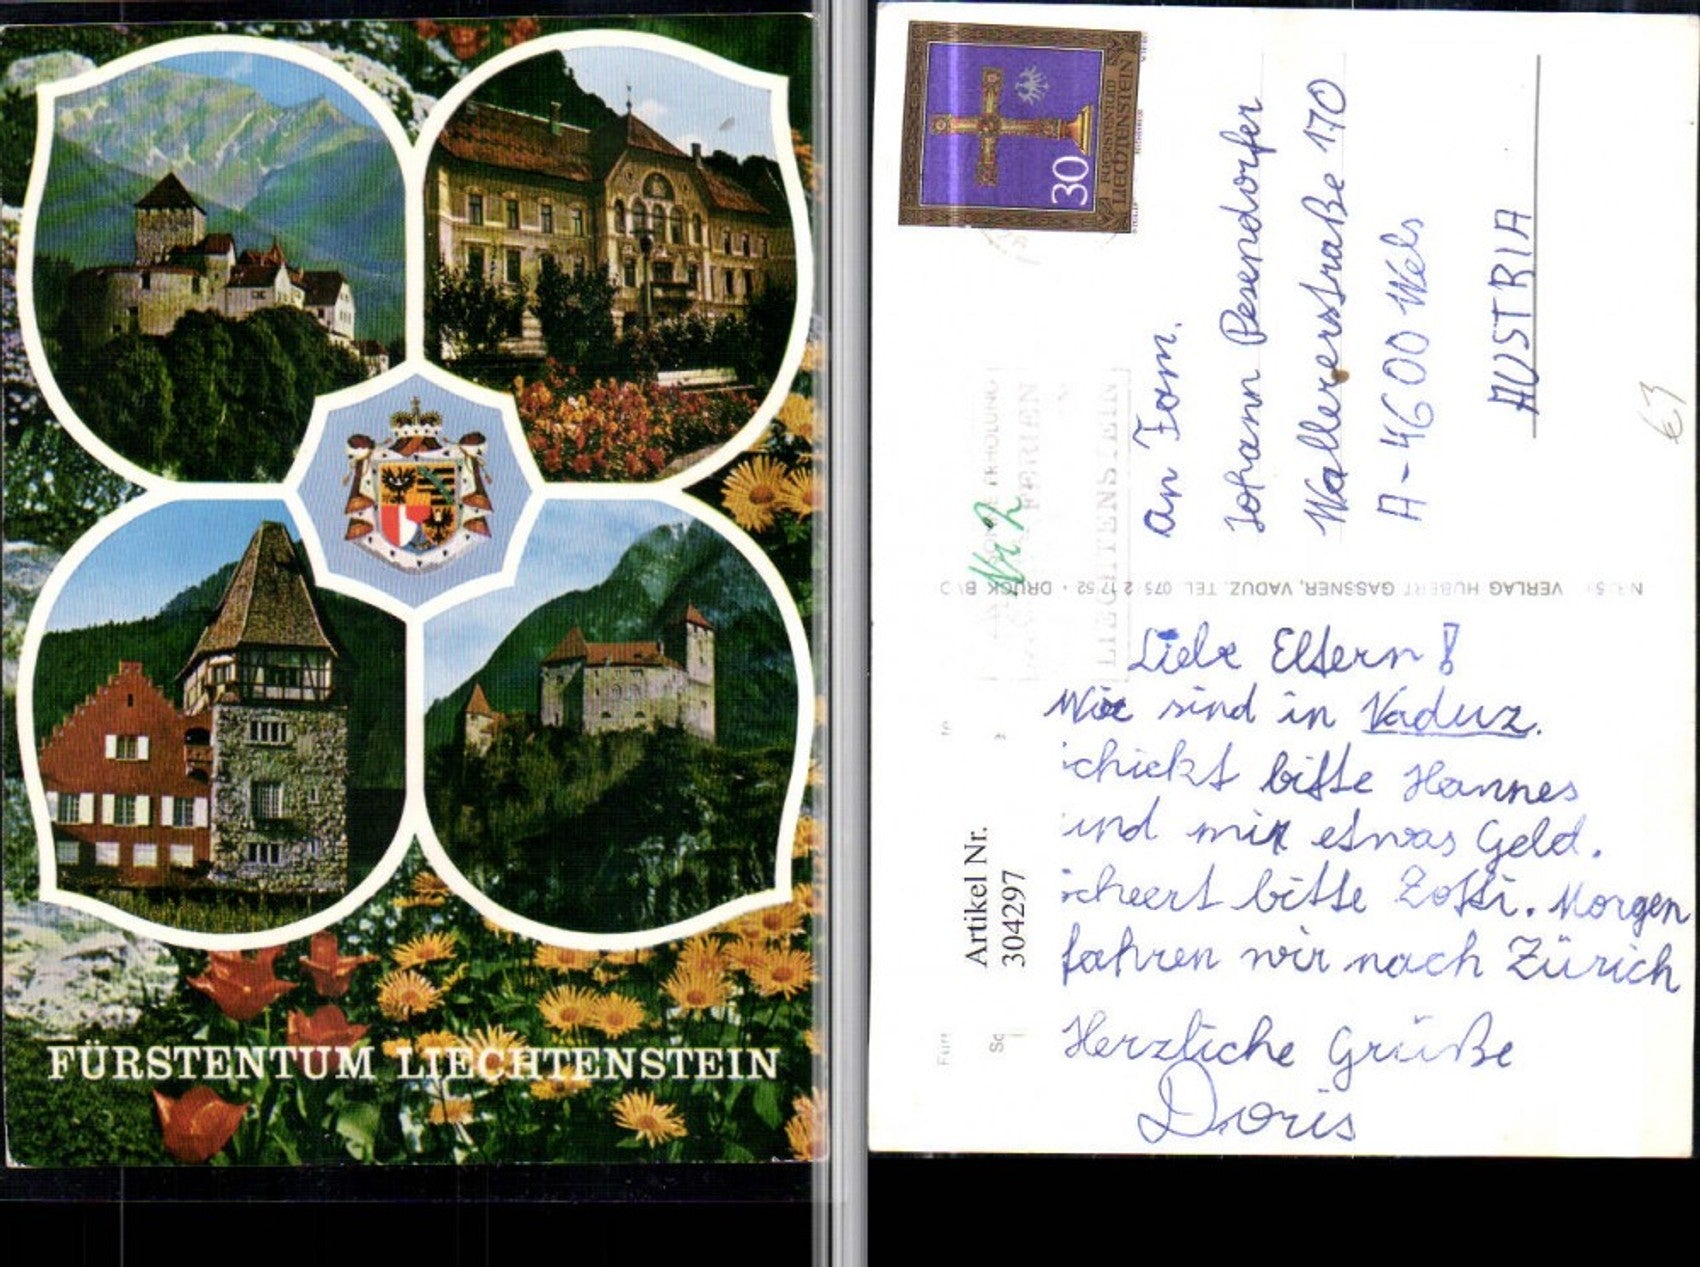 FÜRSTENTUM LIECHTENSTEIN
30
FÜRSTENTUM
LIECHTENSTEIN
FERIEN
LIECHTENSTEIN
Nr 2
An Fam.
Johann Pesendorfer
Wallererstraße 170
A-4600 Wels
AUSTRIA
€3
VERLAG HUBERT GASSNER, VADUZ, TEL. 075 2 17 52 · DRUCK BVD
Liebe Eltern!
Wir sind in Vaduz.
chickt bitte Hannes
und mir etwas Geld.
scheert bitte Zotti. Morgen
fahren wir nach Zürich
Herzliche Grüße
Doris
Artikel Nr.
304297